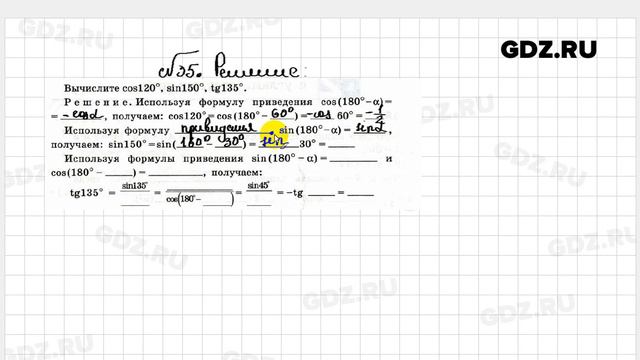 GDZ.RU
№35. Решение:
Вычислите cos120°, sin150°, tg135°.
Решение. Используя формулу приведения cos(180° – α) =
= – cosα, получаем: cos120° = cos(180° – 60°) = –cos 60° = –1/2
Используя формулу приведения sin(180° – α) = sinα,
получаем: sin150° = sin(180° – 30°) = sin 30° = _____
Используя формулы приведения sin(180° – α) = _____ и
cos(180° – _____) = _____, получаем:
tg135° = sin135°/_____ = _____/cos(180° – _____) = sin45°/_____ = –tg _____ = _____